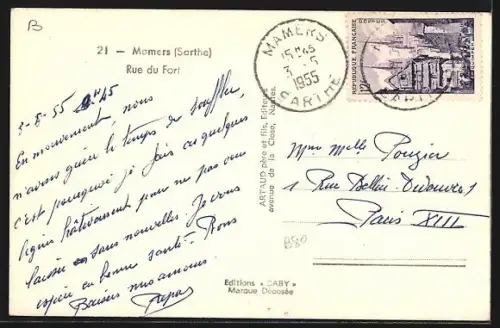 B
21 — Mamers (Sarthe)
Rue du Fort
3-5-55
En mouvement, nous
n'avons guère le temps de souffler
c'est pourquoi je fais ces quelques
lignes hâtivement pour ne pas vous
laisser en sans nouvelles. Je vous
espère en bonne santé. Bons
Baisers mes amours.
Papa
ARTAUD père et fils, Editeurs
avenue de la Close, Nantes
Editions "GABY"
Marque Déposée
MAMERS
15H45
3-5
1955
SARTHE
REPUBLIQUE FRANÇAISE
12F
SARTHE
Mme Melle Pougier
1 Rue Bellier-Dedouvres
Paris XIII
B80